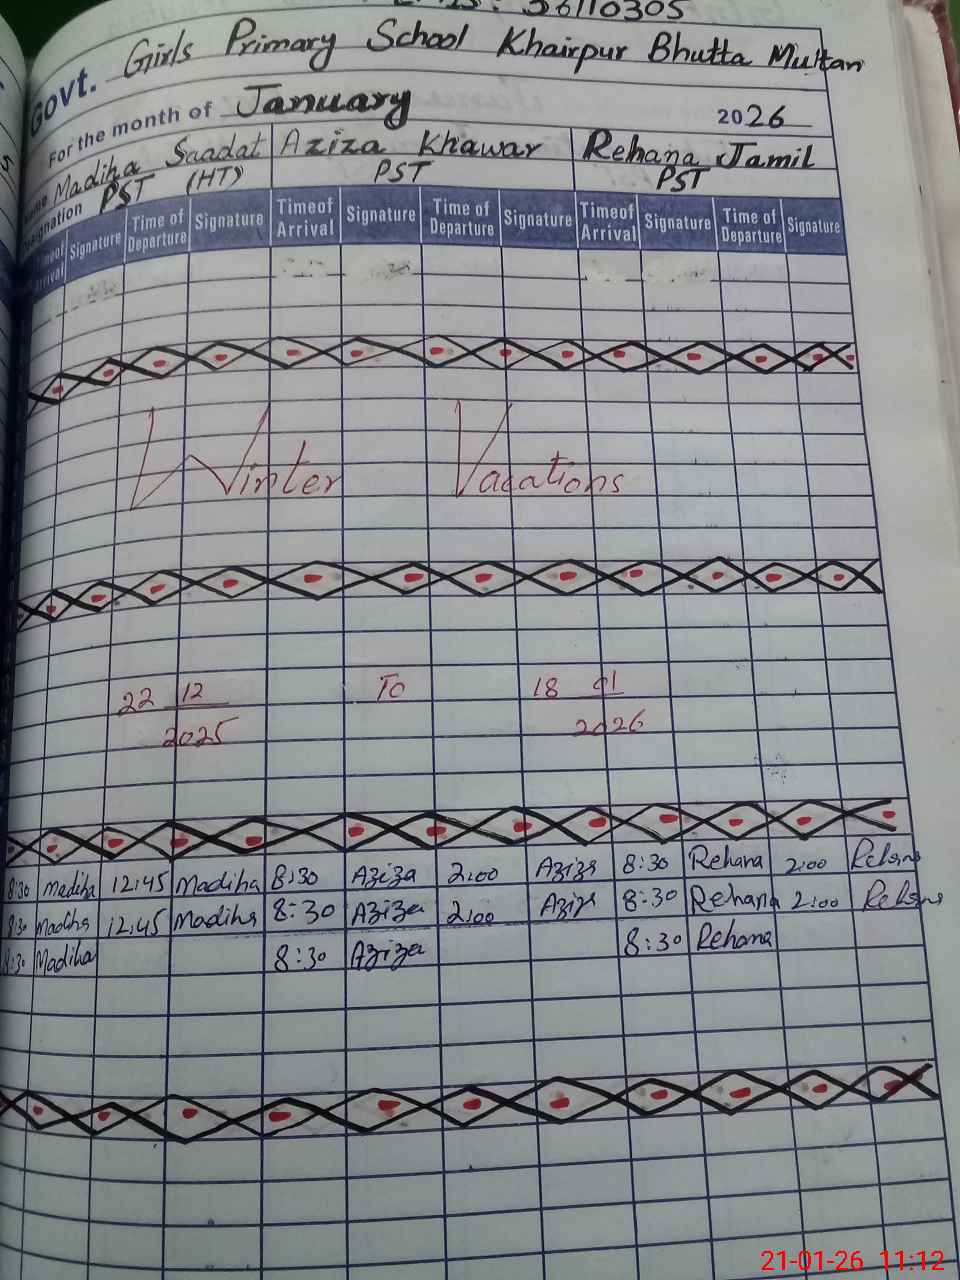 36110305
Govt. Girls Primary School Khairpur Bhutta Multan
For the month of January 2026
Madiha Saadat Aziza Khawar Rehana Jamil
Designation PST (HT) PST PST
Signature Time of Departure Signature Timeof Arrival Signature Time of Departure Signature Timeof Arrival Signature Time of Departure Signature
Winter Vacations
22 12 2025 To 18 01 2026
8:30 Madiha 12:45 Madiha 8:30 Aziza 2:00 Aziza 8:30 Rehana 2:00 Rehana
8:30 Madiha 12:45 Madiha 8:30 Aziza 2:00 Aziza 8:30 Rehana 2:00 Rehana
8:30 Madiha 8:30 Aziza 8:30 Rehana
21-01-26 11:12